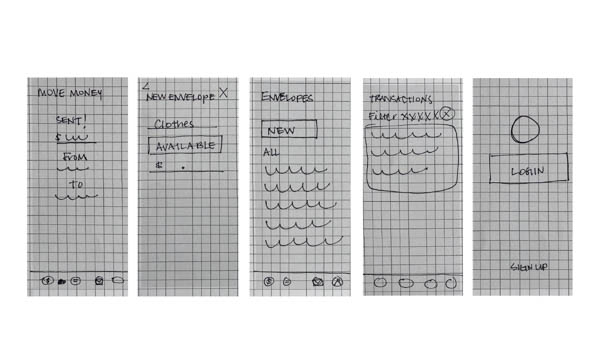 MOVE MONEY
SENT!
$
FROM
TO
< 
NEW ENVELOPE X
Clothes
AVAILABLE
$ .
ENVELOPES
NEW
ALL
TRANSACTIONS
Filter XXXXX X
LOGIN
SIGN UP